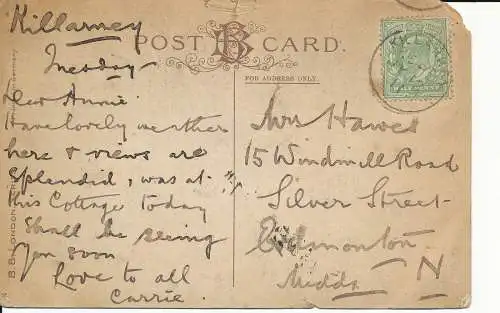 Killarney
Tuesday
Dear Annie
Have lovely weather
here & views are
splendid, was at
this Cottage today
Shall be seeing
you soon
Love to all
Carrie
POST CARD.
FOR ADDRESS ONLY.
HALFPENNY
Mrs Hawes
15 Windmill Road
Silver Street
Edmonton
Middx N